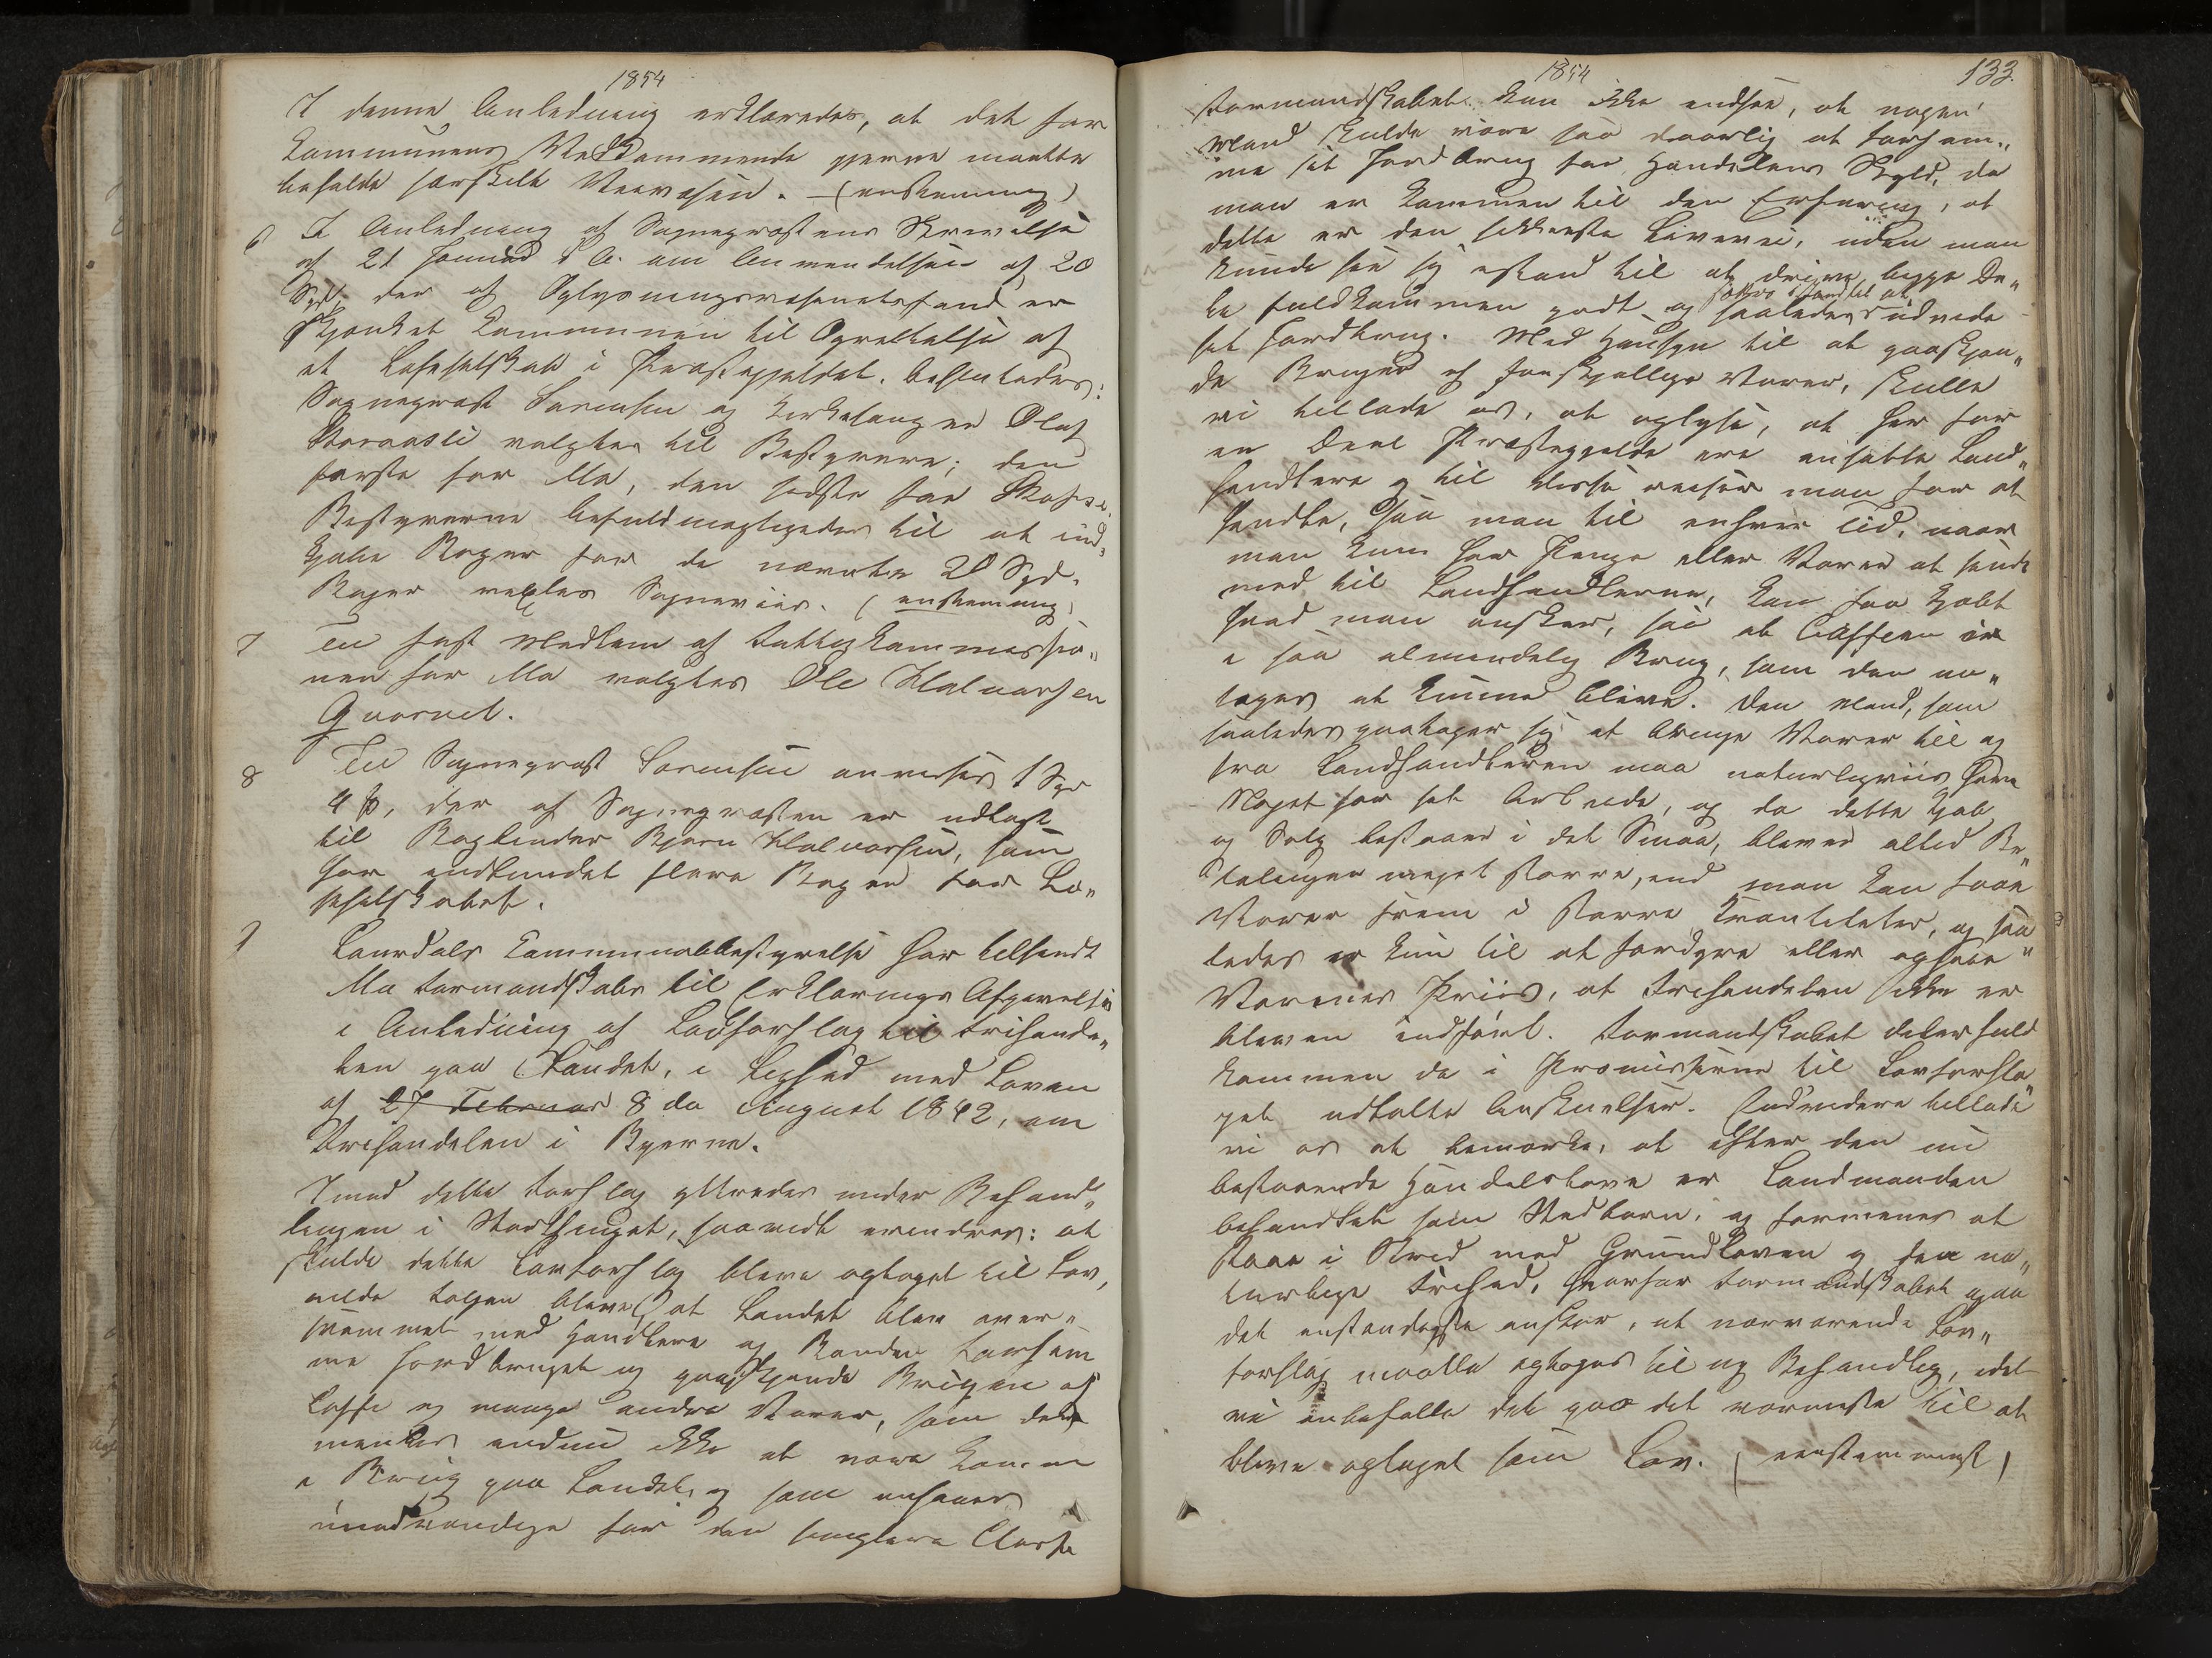 1854
I denne Anledning erklæredes, at det for
Kommunens Vedkommende gjerne maatte
beholde særskilt Veivæsen. – (enstemmig)
6 I Anledning af Sognepræstens Skrivelse
af 21 Januar d. A. om Anvendelsen af 20
Spd, der af Oplysningsvæsenets fond er
skjænket Kommunen til Oprettelse af
et Læseselskab i Præstegjeldet, besluttedes:
Sognepræst Sørensen og Kirkesanger Olaf
Storaasli valgtes til Bestyrere; den
første for Mo, den sidste for Skafse.
Bestyrerne befuldmægtigedes til at ind-
kjøbe Bøger for de nævnte 20 Spd.
Bøger vexles Sogneviis. (enstemmig)
7 Til fast Medlem af Fattigkommissio-
nen for Mo valgtes Ole Halvorsen
Qvarnel.
8 Til Sognepræst Sørensen anvises 1 Spd
4 ß, der af Sognepræsten er udlagt
til Bogbinder Bjørn Halvorsen, som
har indbundet flere Bøger for Læ-
seselskabet.
9 Laurdals Kommunebestyrelse har tilsendt
Mo Formandskab til Erklærings Afgivelse
i Anledning af Lovforslag til Frihande-
len paa Landet, i Lighed med Loven
af 27 Februar 8de August 1842, om
Frihandelen i Byerne.
Imod dette Forslag yttredes under Behand-
lingen i Storthinget, saavidt erindres: at
skulde dette Lovforslag blive optaget til Lov,
vilde Følgen blive, at Landet blev over-
svømmet med Handlere og Bonden forsøm-
me Jordbruget og paaskynde Brugen af
Caffe og mange andre Varer, som der
mentes endnu ikke at være kommen
i Brug paa Landet, og som ansaaes
unødvendige for den simplere Classe
1854
133.
Formandskabet kan ikke indsee, at nogen
Mand skulde være saa daarlig at forsøm-
me sit Jordbrug for Handelens Skyld, da
man er kommen til den Erfaring, at
dette er den sikkerste Levevei, uden man
kunde see sig istand til at drive begge De-
le fuldkommen godt, og saaledes sættes i stand til at udvide
sit Jordbrug. Med Hensyn til at paaskyn-
de Brugen af forskjellige Varer, skulle
vi tillade os, at oplyse, at her for
en Deel Præstegjelde ere ansatte Land-
handlere og til disse reiser man for at
handle, saa man til enhver Tid, naar
man kun har Penge eller Varer at sende
med til Landhandlerne, kan faa kjøbt
hvad man ønsker, saa at Caffeen er
i saa almindelig Brug, som den an-
tages at kunne blive. Den Mand, som
saaledes paatager sig at bringe Varer til og
fra Landhandleren maa naturligviis have
Noget for sit Arbeide, og da dette Kjøb
og Salg bestaaer i det Smaa, bliver altid Be-
talingen meget større, end man kan faae
Varer frem i større Kvantiteter, og saa
ledes er kun til at fordyre eller ophøie
Varenes Priis, at Frihandelen ikke er
bleven indført. Formandskabet deler fuld
kommen de i Præmisserne til Lovforsla-
get udtalte Anskuelser. Endvidere tillade
vi os at bemærke, at efter den nu
bestaaende Handelslove er Landmanden
behandlet som Stedbarn, og formenes at
staae i Strid med Grundloven og den na-
turlige Frihed, hvorfor Formandskabet paa
det enstændigste ønsker, at nærværende Lov-
forslag maatte optages til ny Behandling, idet
vi anbefalle det paa det varmeste til at
blive optaget som Lov. (eenstemmigt)